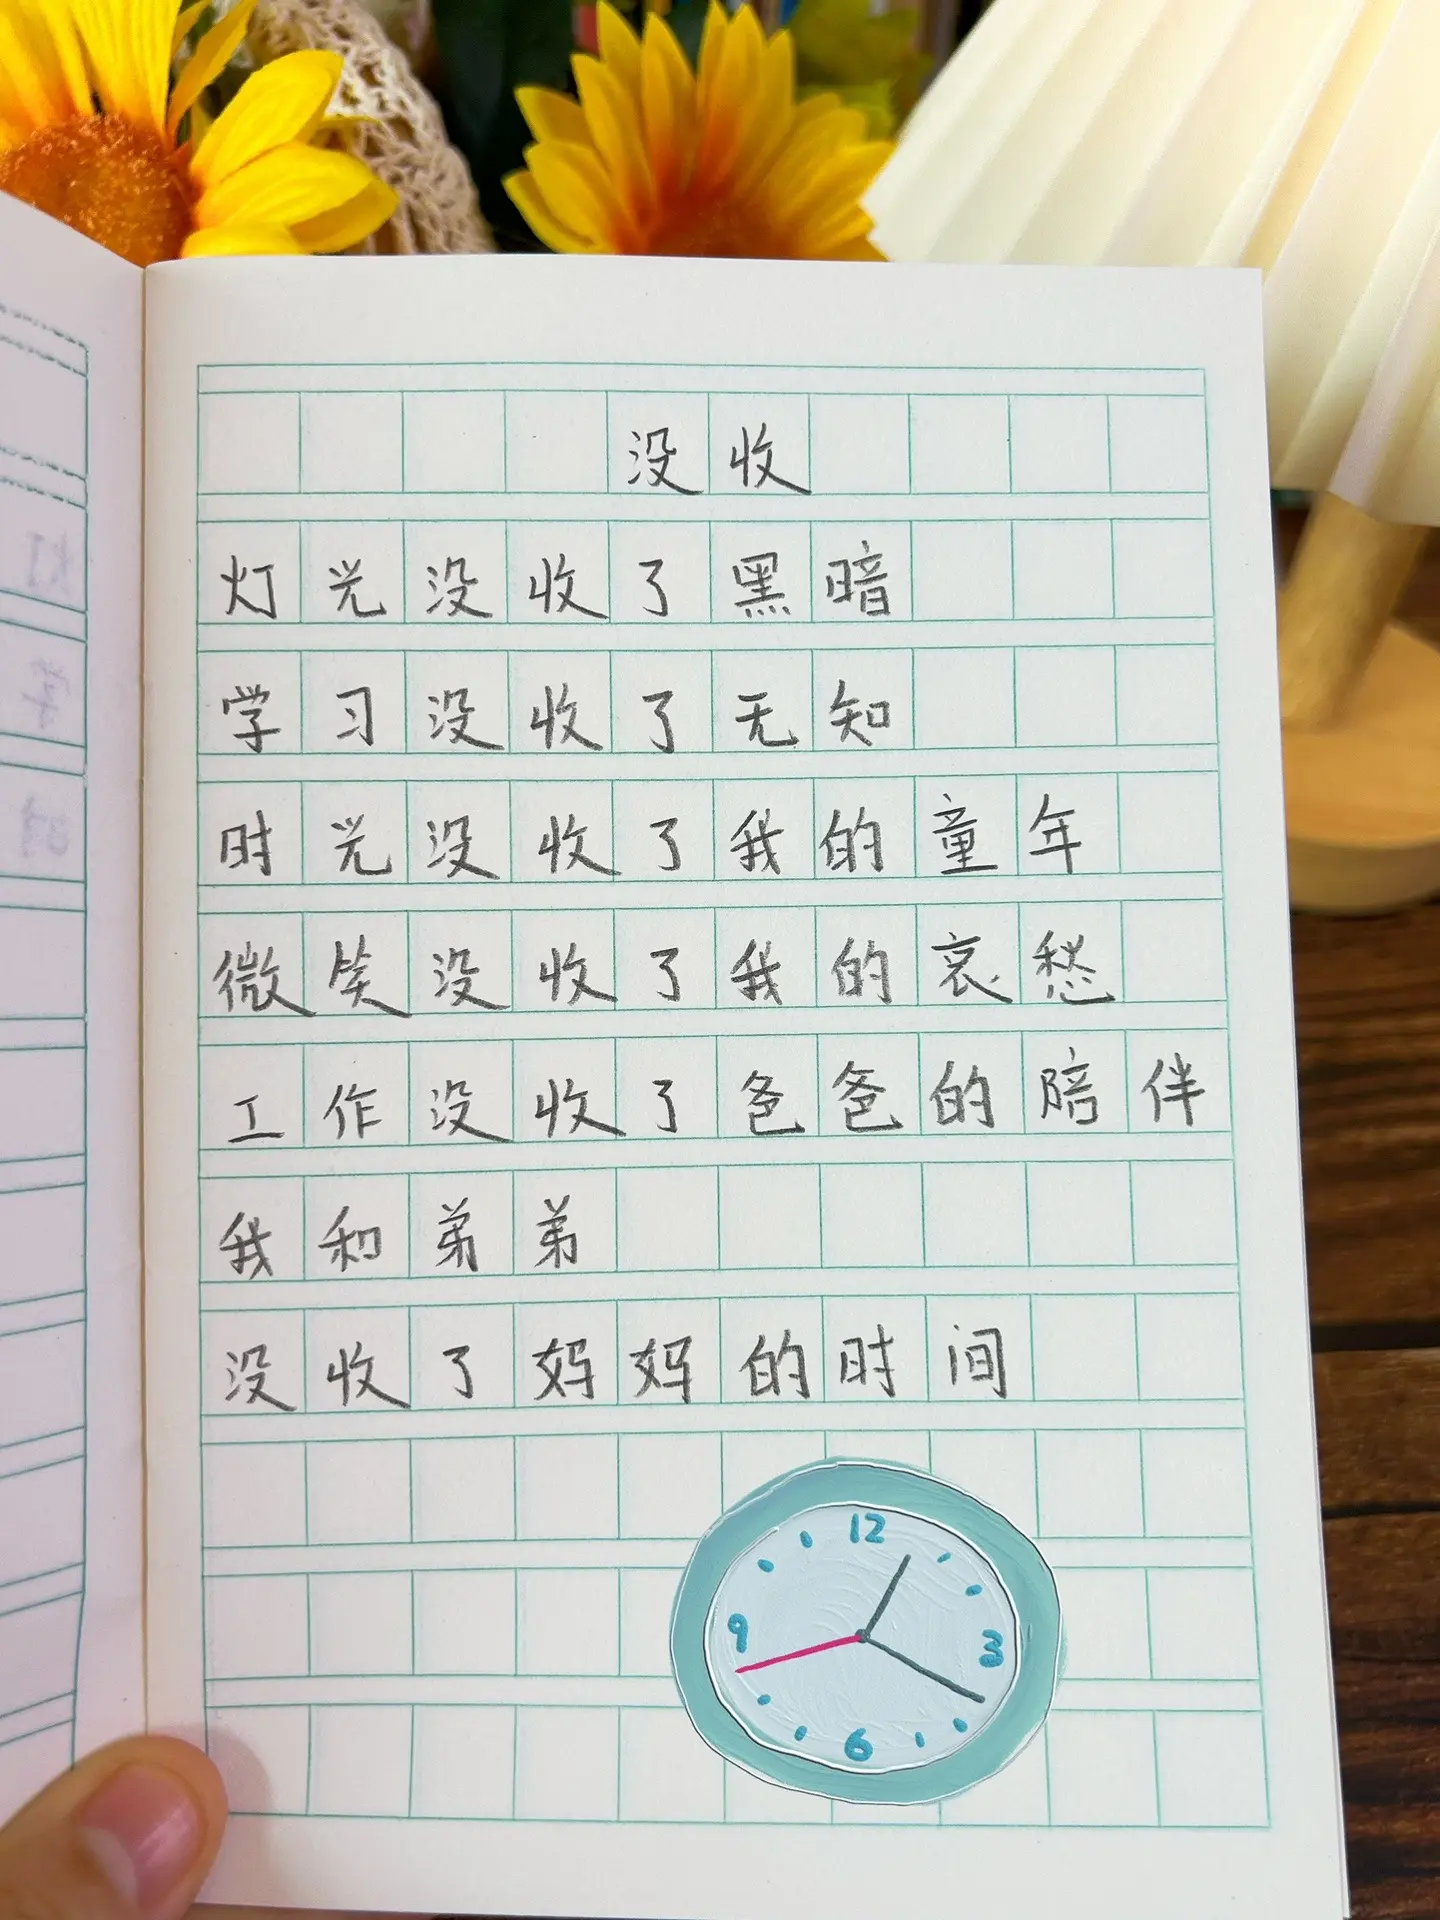 没收
灯光没收了黑暗
学习没收了无知
时光没收了我的童年
微笑没收了我的哀愁
工作没收了爸爸的陪伴
我和弟弟
没收了妈妈的时间
12
9
3
6